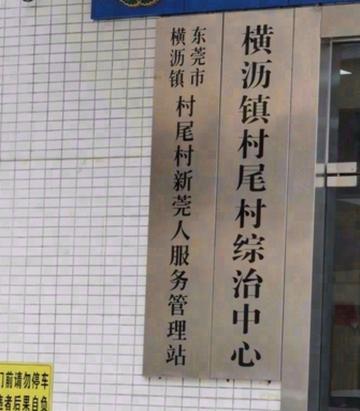 横沥镇村尾村综治中心
东莞市
横沥镇
村尾村新莞人服务管理站
门前请勿停车
违者后果自负